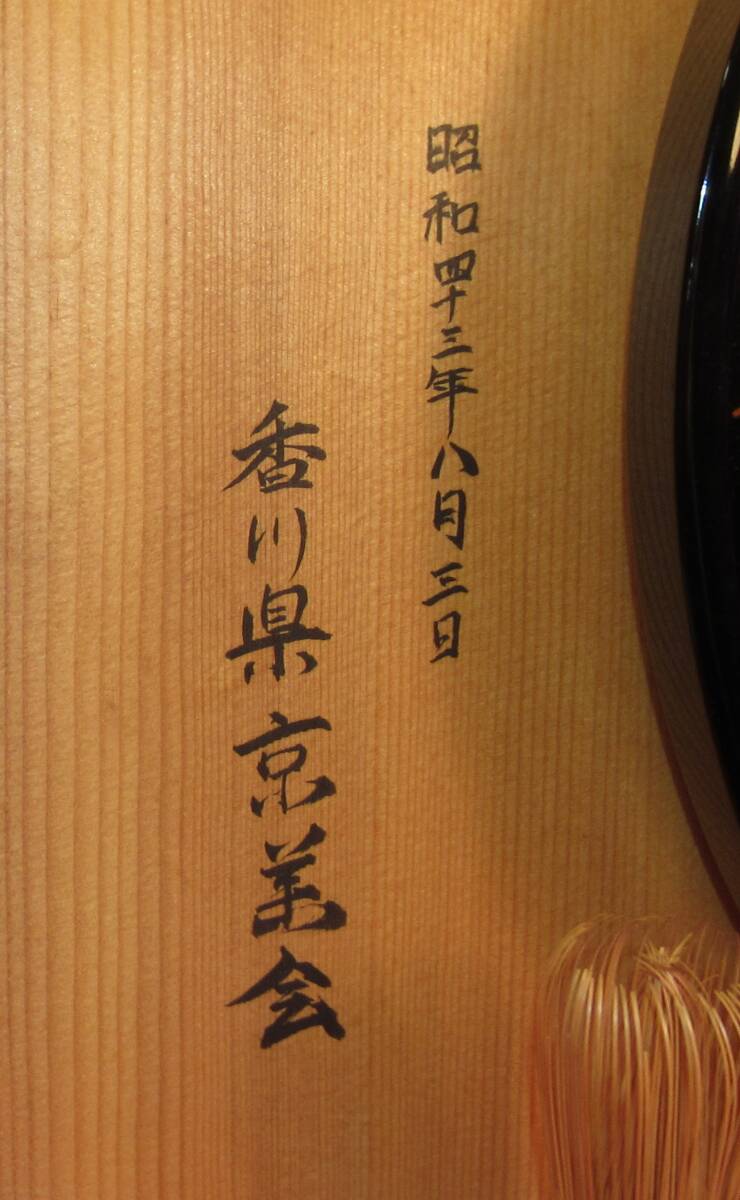 昭和四十三年八月三日
香川県京葉会